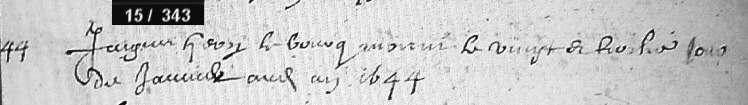 15 / 343
44 Jacques henry le bourg mourut le vingt et troisie Jour
de Janvier aud an 1644